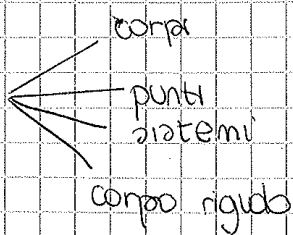 corpi
punti
sistemi
corpo rigido